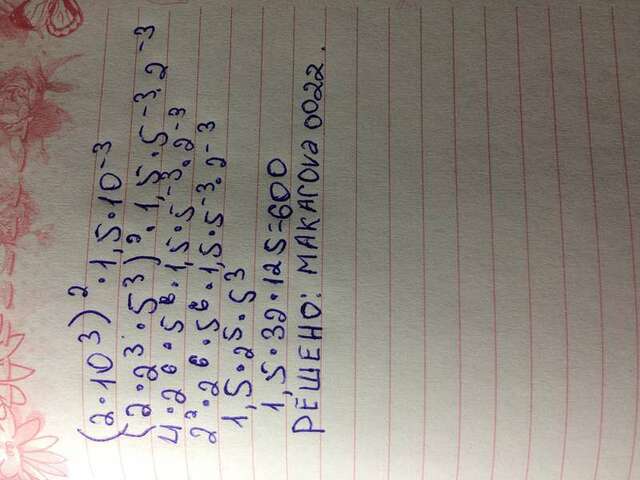 (2·10³)²·1,5·10⁻³
(2·2³·5³)²·1,5·5⁻³·2⁻³
4·2⁶·5⁶·1,5·5⁻³·2⁻³
2²·2⁶·5⁶·1,5·5⁻³·2⁻³
1,5·2⁵·5³
1,5·32·125=600
РЕШЕНО: МАКАРОVА 0022.